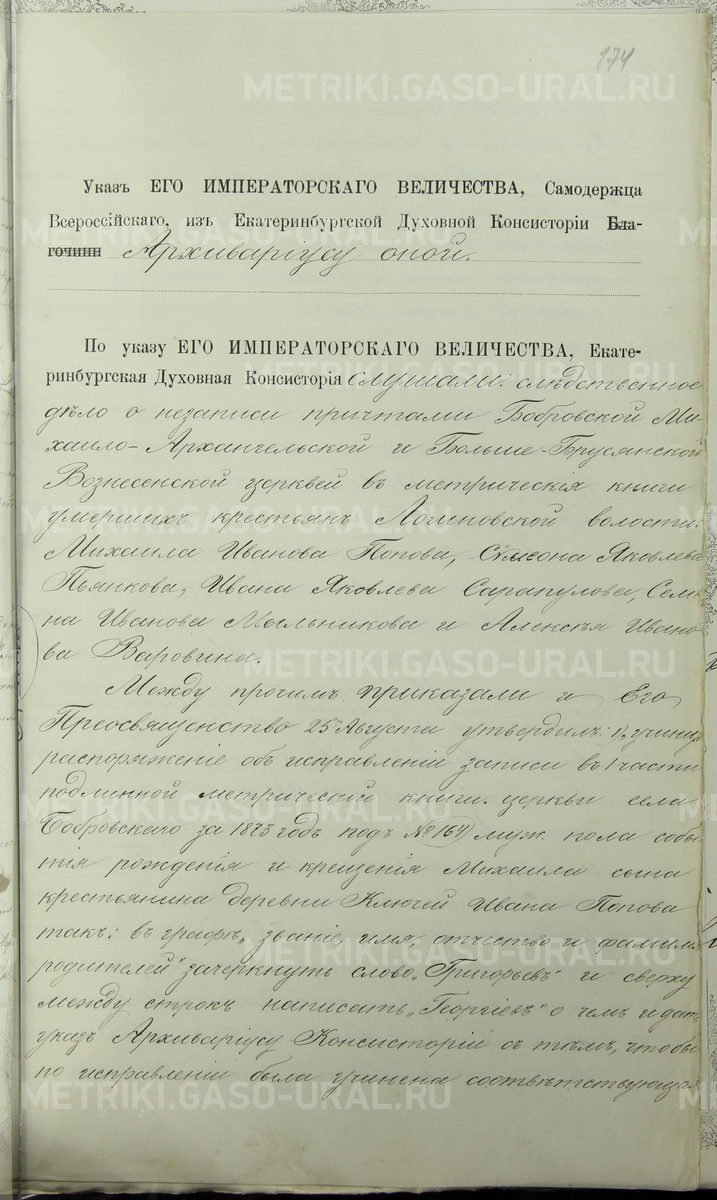 174
Указъ ЕГО ИМПЕРАТОРСКАГО ВЕЛИЧЕСТВА, Самодержца
Всероссійскаго, изъ Екатеринбургской Духовной Консисторіи Бла-
гочинн Архиваріусу оной.
По указу ЕГО ИМПЕРАТОРСКАГО ВЕЛИЧЕСТВА, Екате-
ринбургская Духовная Консисторія слушали: слѣдственное
дѣло о незаписи причтами Бобровской Ми-
хаило-Архангельской и Больше-Брусянской
Вознесенской церквей въ метрическія книги
умершихъ крестьянъ Логиновской волости:
Михаила Иванова Попова, Симеона Яковлева
Пьянкова, Ивана Яковлева Сарапулова, Семе-
на Иванова Мыльникова и Алексѣя Ивано-
ва Варовина.
Между прочимъ приказали и Его
Преосвященство 25 Августа утвердилъ: 1, учинить
распоряженіе объ исправленіи записи въ 1 части
подлинной метрической книги церкви села
Бобровскаго за 1873 годъ подъ № 164 муж. пола собы-
тія рожденія и крещенія Михаила сына
крестьянина деревни Ключей Ивана Попова
такъ: въ графѣ „званіе, имя, отчество и фамилія
родителей" зачеркнуть слово „Григорьевъ" и сверху
между строкъ написать „Георгіевъ" о чемъ и дать
указъ Архиваріусу Консисторіи съ тѣмъ, чтобы
по исправленіи была учинена соотвѣтствующая
METRIKI.GASO-URAL.RU